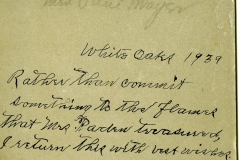 White Oaks 1939
Rather than commit
something to the flames
that Mrs. Paden treasured,
I return this with best wishes